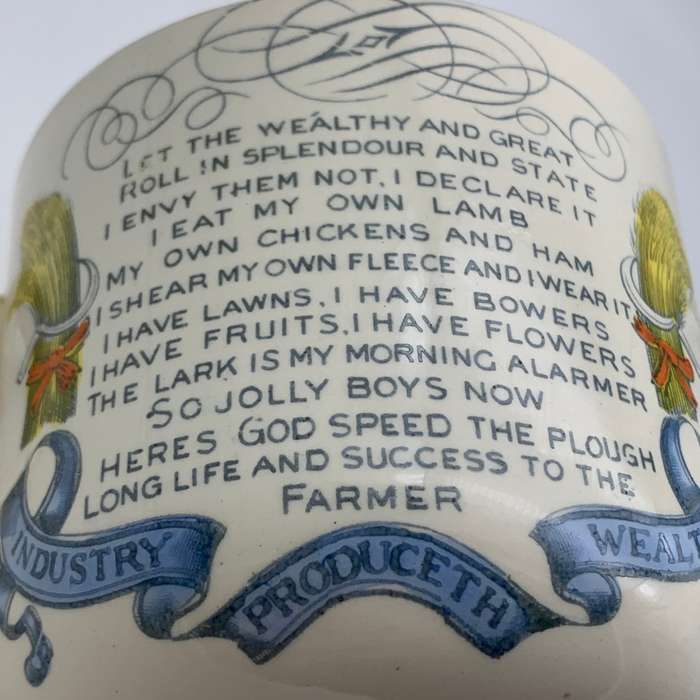 LET THE WEALTHY AND GREAT
ROLL IN SPLENDOUR AND STATE
I ENVY THEM NOT, I DECLARE IT
I EAT MY OWN LAMB
MY OWN CHICKENS AND HAM
I SHEAR MY OWN FLEECE AND I WEAR IT
I HAVE LAWNS, I HAVE BOWERS
I HAVE FRUITS, I HAVE FLOWERS
THE LARK IS MY MORNING ALARMER
SO JOLLY BOYS NOW
HERES GOD SPEED THE PLOUGH
LONG LIFE AND SUCCESS TO THE
FARMER
INDUSTRY PRODUCETH WEALT